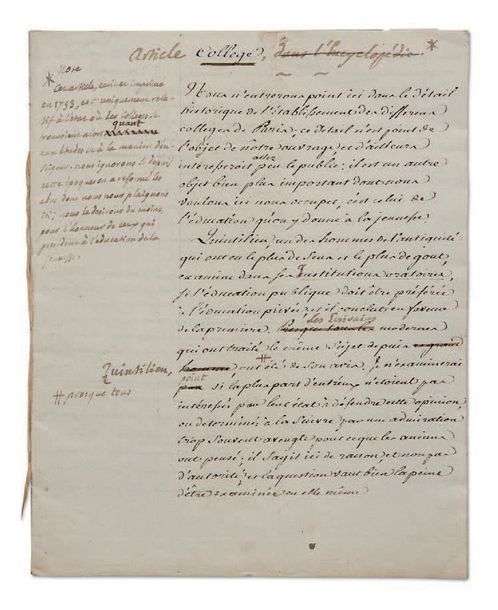 Article College, dans l'Encyclopédie *
Note
* Cet article, composé et imprimé
en 1753, est uniquement relatif
à l'état où les Colleges se
trouvoient alors quant
aux études et à la maniere d'en-
nous ignorons si depuis
cette époque on a réformé les
abus dont nous nous plaignons
ici; nous le desirons du moins
pour l'honneur de ceux qui
président à l'éducation de la
jeunesse.
Quintilien,
# presque tous
Nous n'entrerons point ici dans le détail
historique de l'établissement des différens
colleges de Paris; ce détail n'est point de
l'objet de notre ouvrage, et d'ailleurs
assez
interesseroit peu le public; il est un autre
objet bien plus important dont nous
voulons ici nous occuper, c'est celui de
l'éducation qu'on y donne à la jeunesse
Quintilien, un des hommes de l'antiquité
qui ont eu le plus de sens et le plus de gout,
examine dans ses Institutions oratoires,
si l'éducation publique doit être préférée
à l'éducation privée; et il conclut en faveur
Les Ecrivains
de la premiere. Presque tous les modernes
qui ont traité le même sujet depuis ce grand
homme, # ont été de son avis. Je n'examinerai
point
pas si la plus part d'entr'eux n'étoient pas
intéressés par leur état à défendre cette opinion,
ou determinés à la suivre par une admiration
trop souvent aveugle pour ce que les anciens
ont pensé; il s'agit ici de raison, et non pas
d'autorité, et la question vaut bien la peine
d'être examinée en elle même